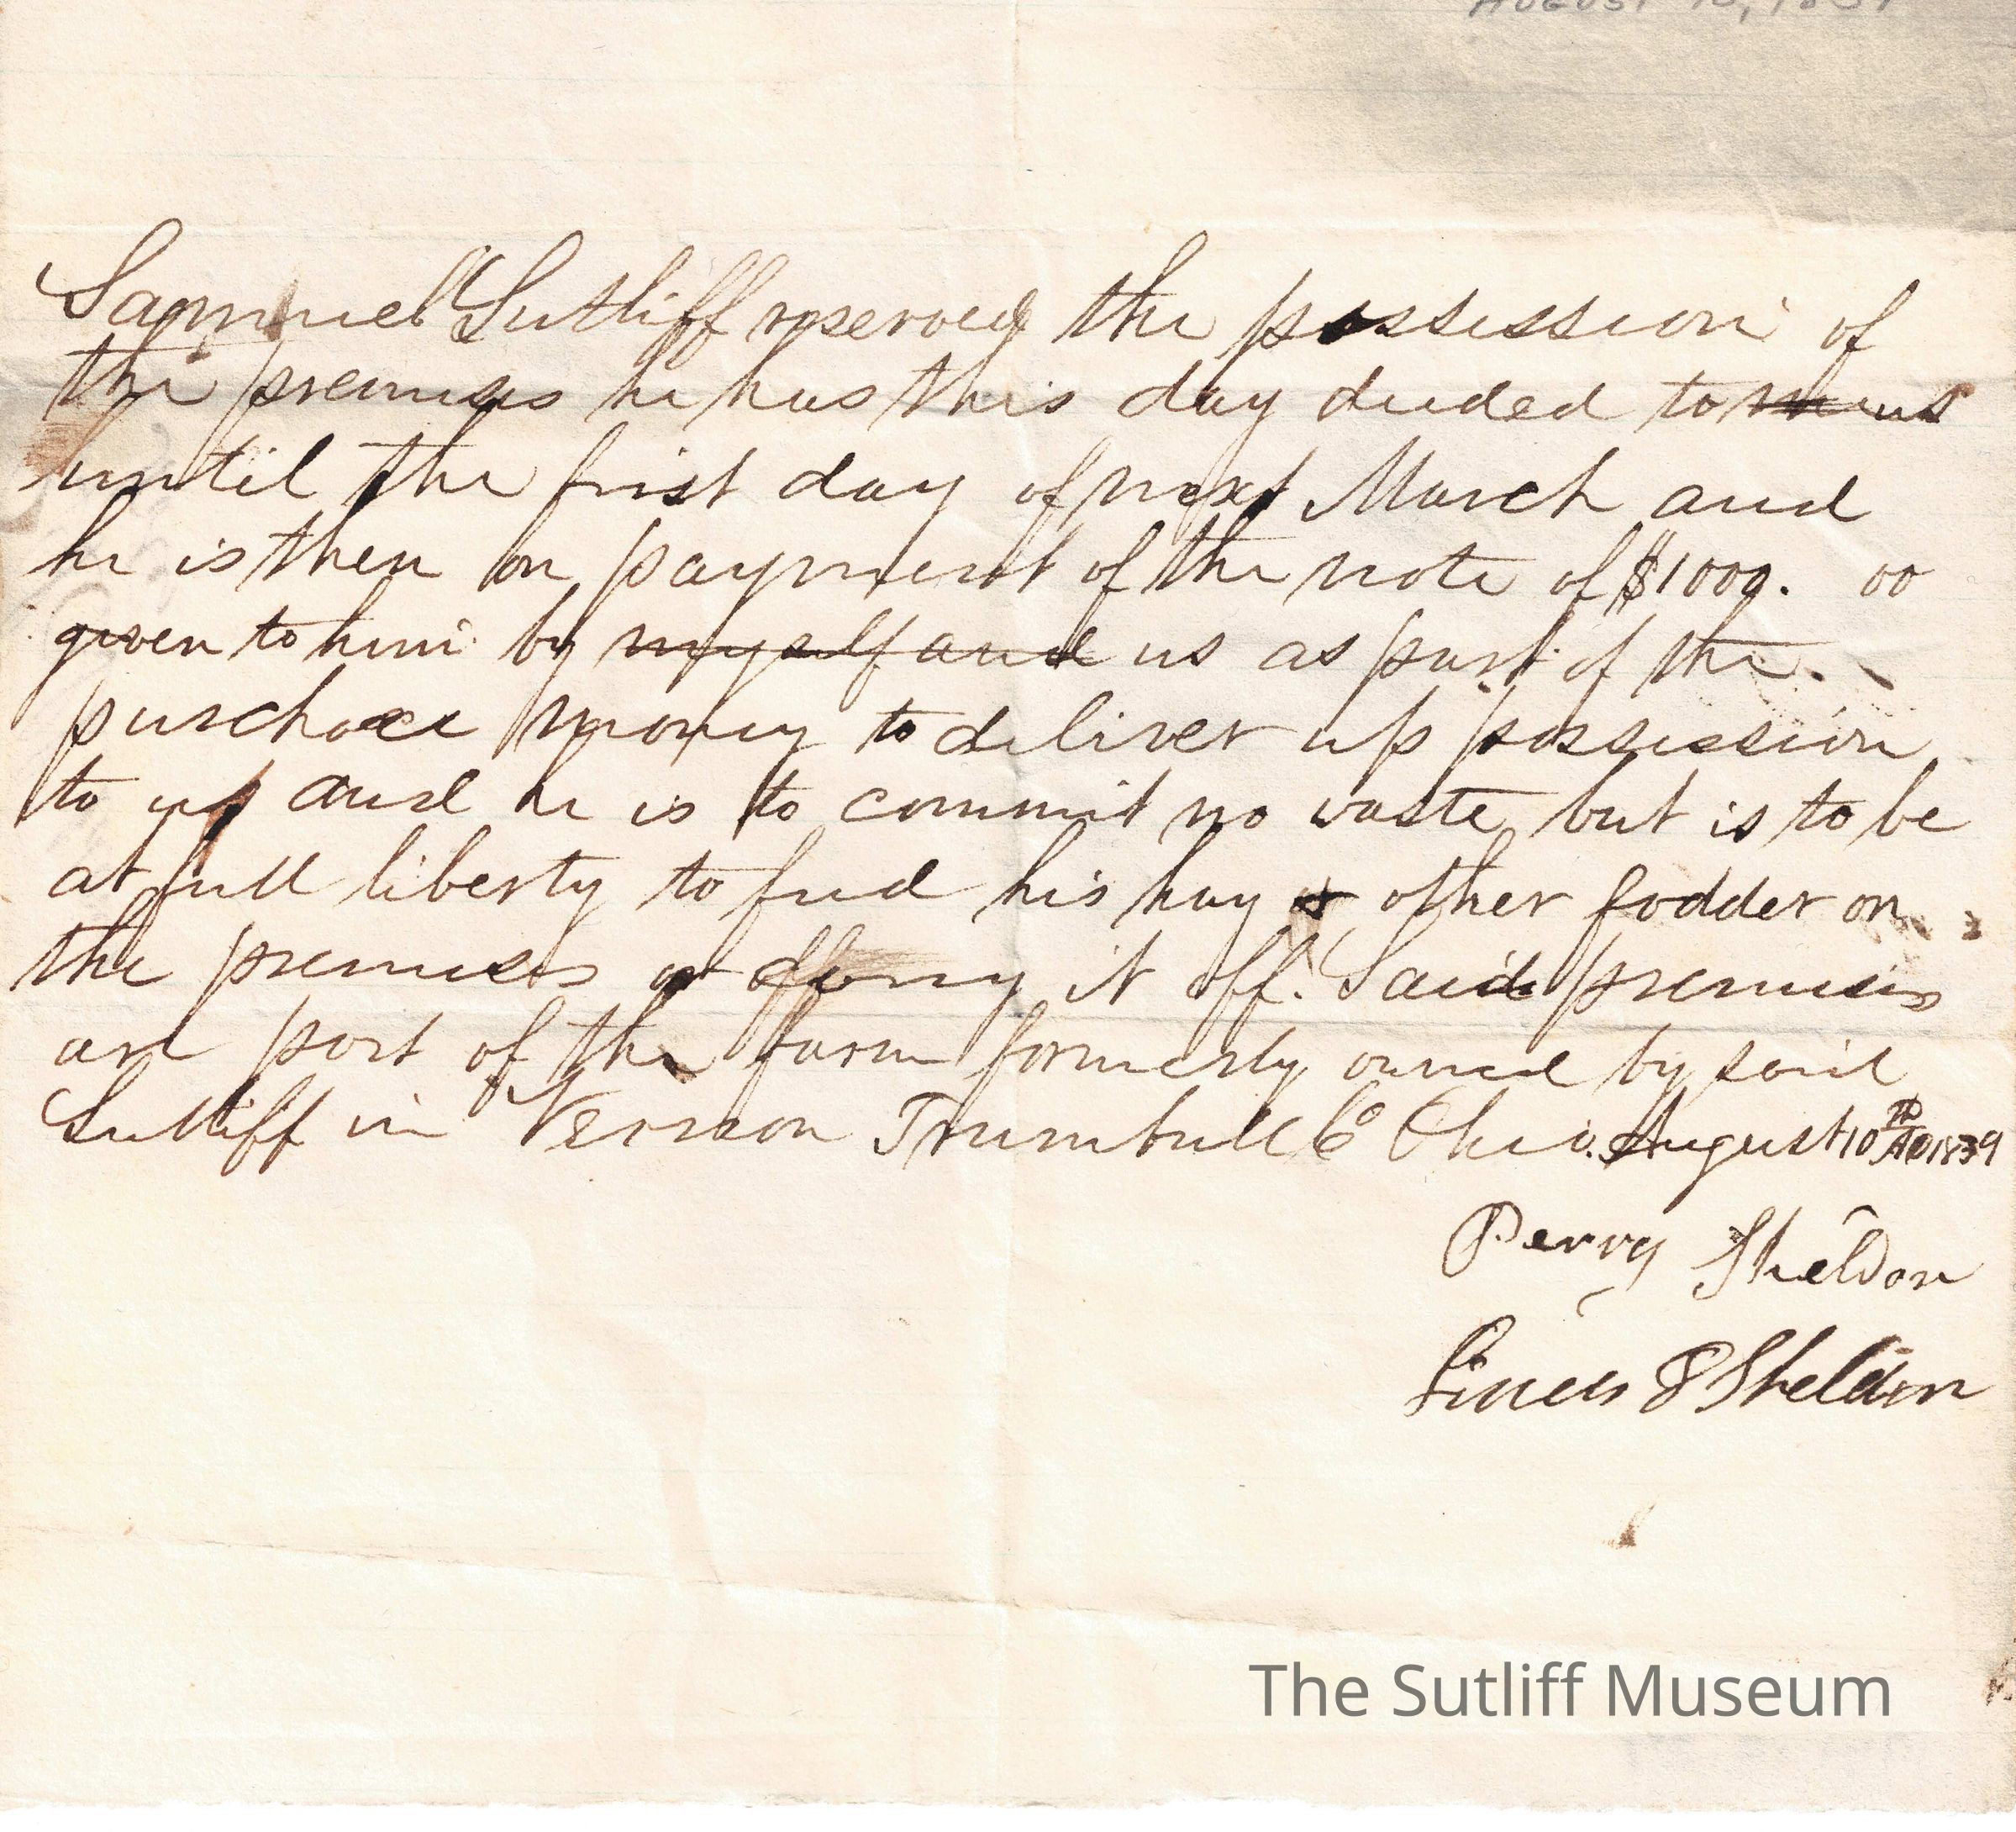 AUGUST 10, 1839
Samuel Sutliff reserves the possession of
the premises he has this day deeded to us
until the first day of next March and
he is then on payment of the note of $1000. 00
given to him by myself and us as part of the
purchase money to deliver up possession
to us and he is to commit no waste but is to be
at full liberty to feed his hay & other fodder on
the premises or it off. Said premises
are part of the farm formerly owned by said
Sutliff in Vernon Trumbull Co Ohio. August 10th AD 1839
Perry Sheldon
Sheldon
The Sutliff Museum